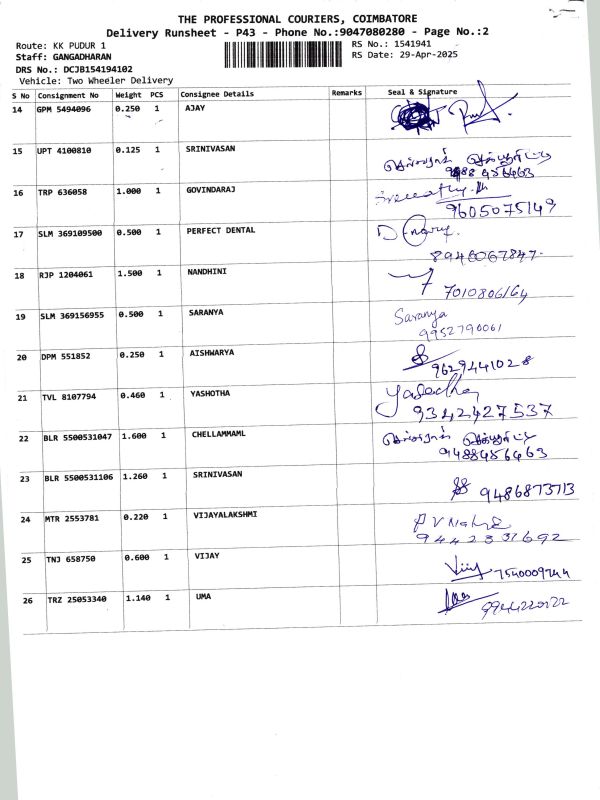 THE PROFESSIONAL COURIERS, COIMBATORE
Delivery Runsheet - P43 - Phone No.:9047080280 - Page No.:2
Route: KK PUDUR 1 RS No.: 1541941
Staff: GANGADHARAN RS Date: 29-Apr-2025
DRS No.: DCJB154194102
Vehicle: Two Wheeler Delivery
S No Consignment No Weight PCS Consignee Details Remarks Seal & Signature
14 GPM 5494096 0.250 1 AJAY
15 UPT 4100810 0.125 1 SRINIVASAN
9488456463
16 TRP 636058 1.000 1 GOVINDARAJ
9605075149
17 SLM 369109500 0.500 1 PERFECT DENTAL
8946067847
18 RJP 1204061 1.500 1 NANDHINI
7010806164
19 SLM 369156955 0.500 1 SARANYA Saranya
9952790061
20 DPM 551852 0.250 1 AISHWARYA
9629441028
21 TVL 8107794 0.460 1 YASHOTHA
9342427537
22 BLR 5500531047 1.600 1 CHELLAMMAL
9488456463
23 BLR 5500531106 1.260 1 SRINIVASAN
9486873713
24 MTR 2553781 0.220 1 VIJAYALAKSHMI
9442331692
25 TNJ 658750 0.600 1 VIJAY
7540009744
26 TRZ 25053340 1.140 1 UMA
9944220222